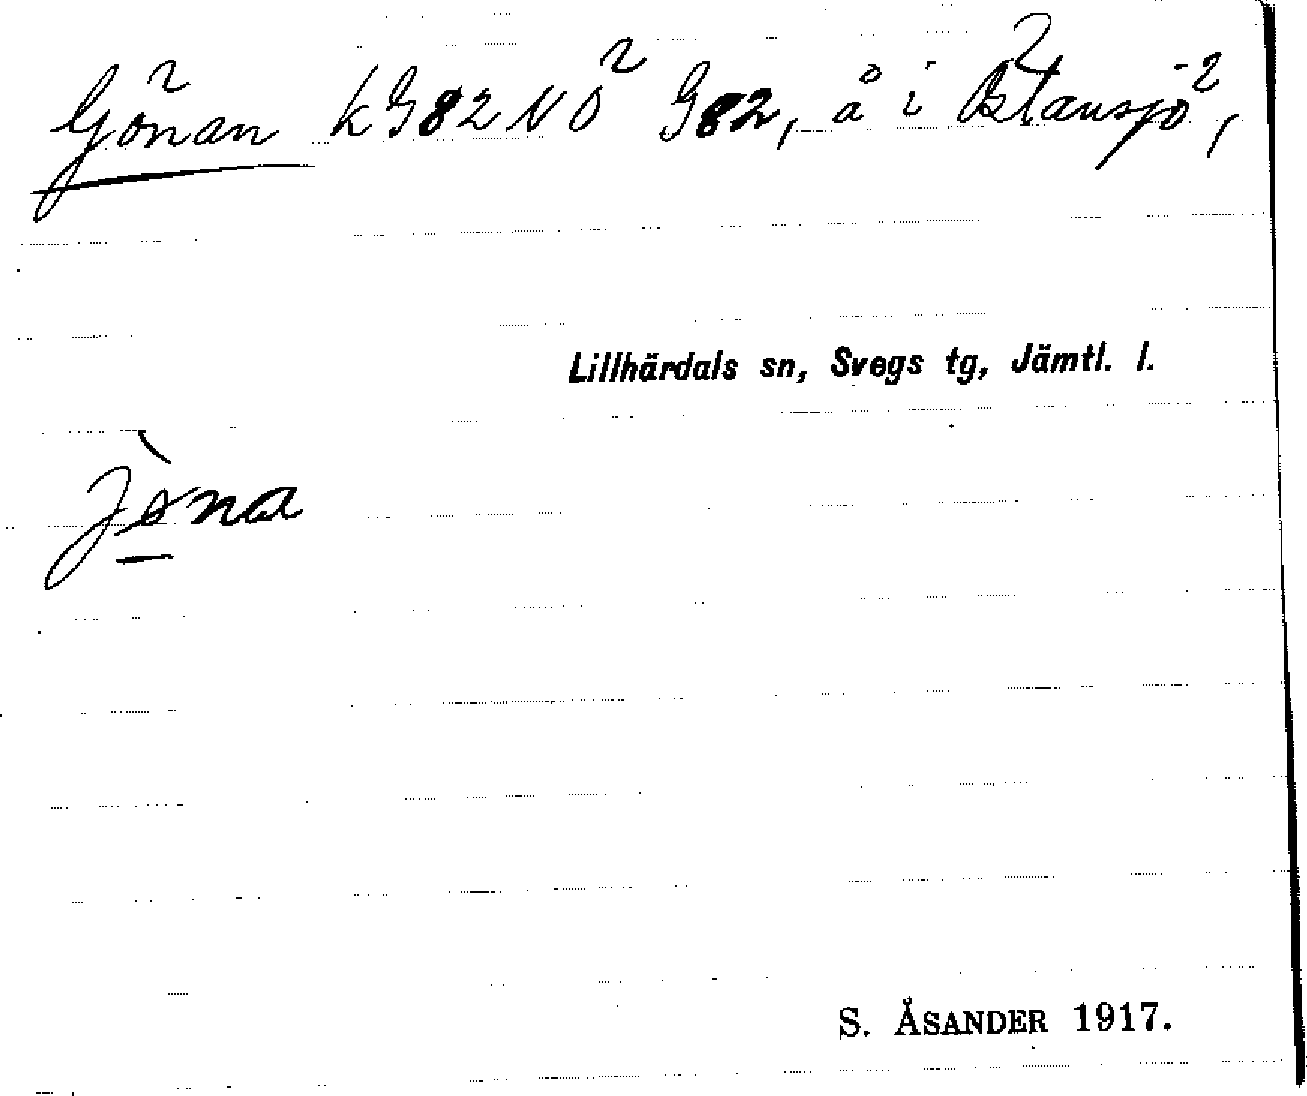 Gönan kG82NÖ G82, å i Blansjö,
Lillhärdals sn, Svegs tg, Jämtl. l.
S. ÅSANDER 1917.